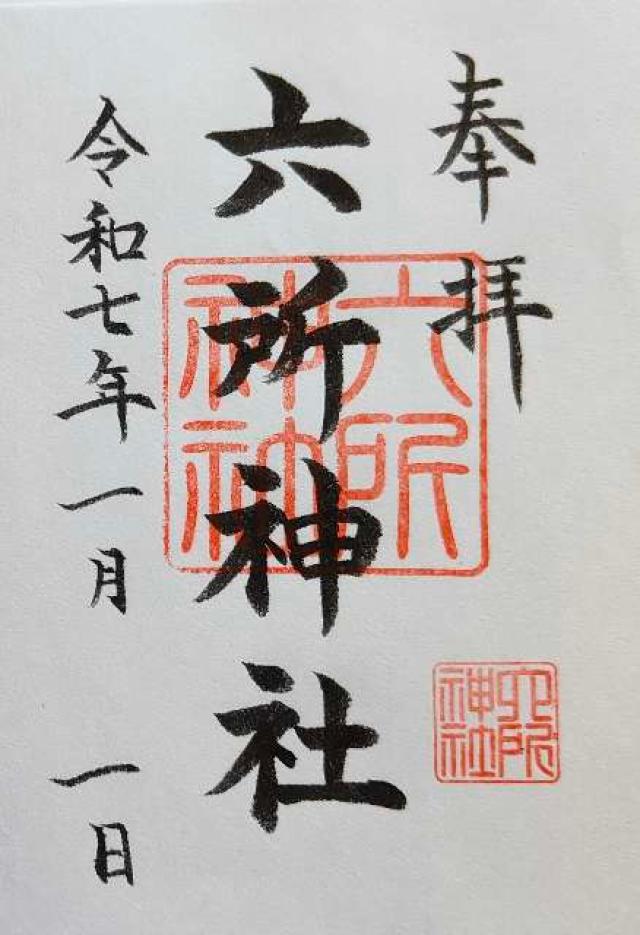 奉拝
六所神社
令和七年一月 一日
六所神社
六所神社